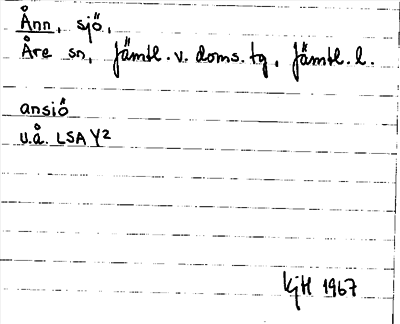 Ånn, sjö,
Åre sn, Jämtl. v. doms. tg, Jämtl. l.
ansiö
u.å. LSA Y2
KjH 1967